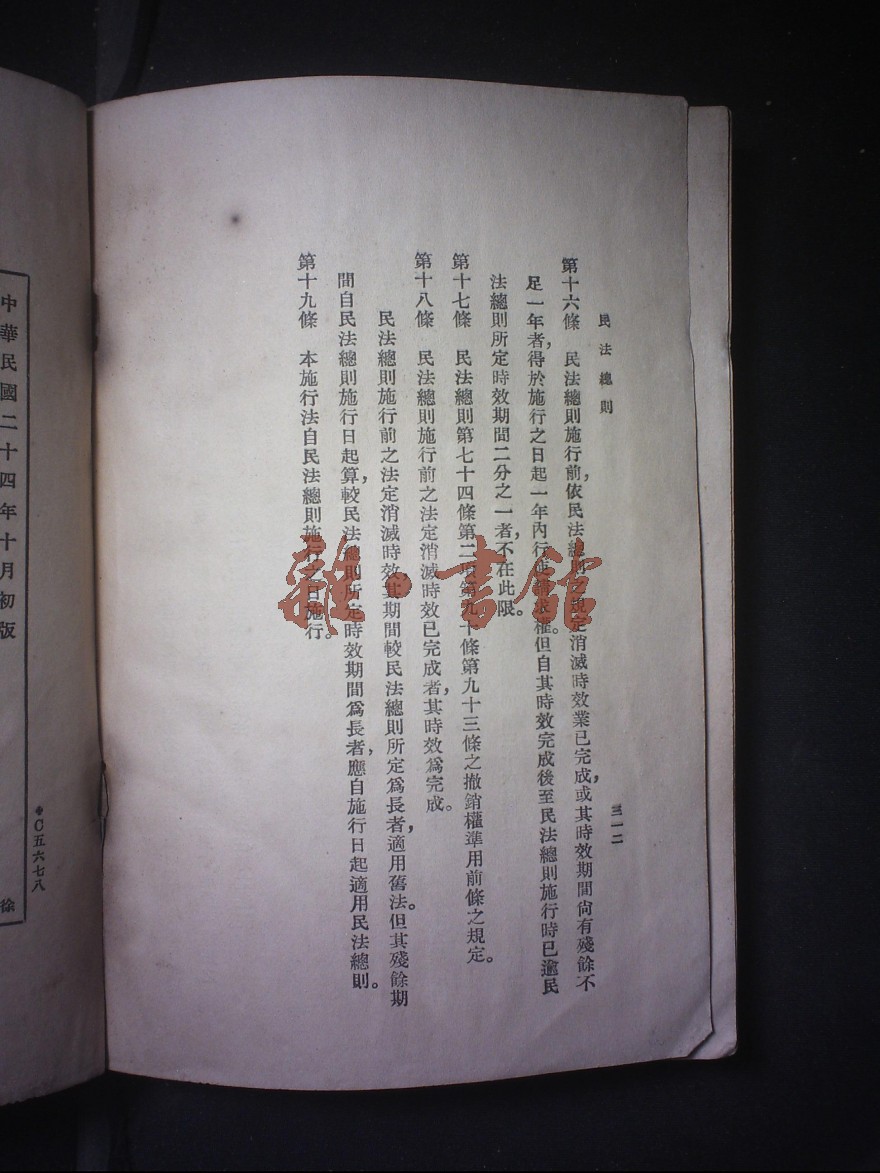 民法總則
三一二
第十六條　民法總則施行前,依民法總則之規定消滅時效業已完成,或其時效期間尙有殘餘不
足一年者,得於施行之日起一年內行使請求權。但自其時效完成後至民法總則施行時已逾民
法總則所定時效期間二分之一者,不在此限。
第十七條　民法總則第七十四條第二項第九十條第九十三條之撤銷權準用前條之規定。
第十八條　民法總則施行前之法定消滅時效已完成者,其時效爲完成。
民法總則施行前之法定消滅時效其期間較民法總則所定爲長者,適用舊法。但其殘餘期
間自民法總則施行日起算,較民法總則所定時效期間爲長者,應自施行日起適用民法總則。
第十九條　本施行法自民法總則施行之日施行。
雜·書館
中華民國二十四年十月初版
◆〇五六七八
徐